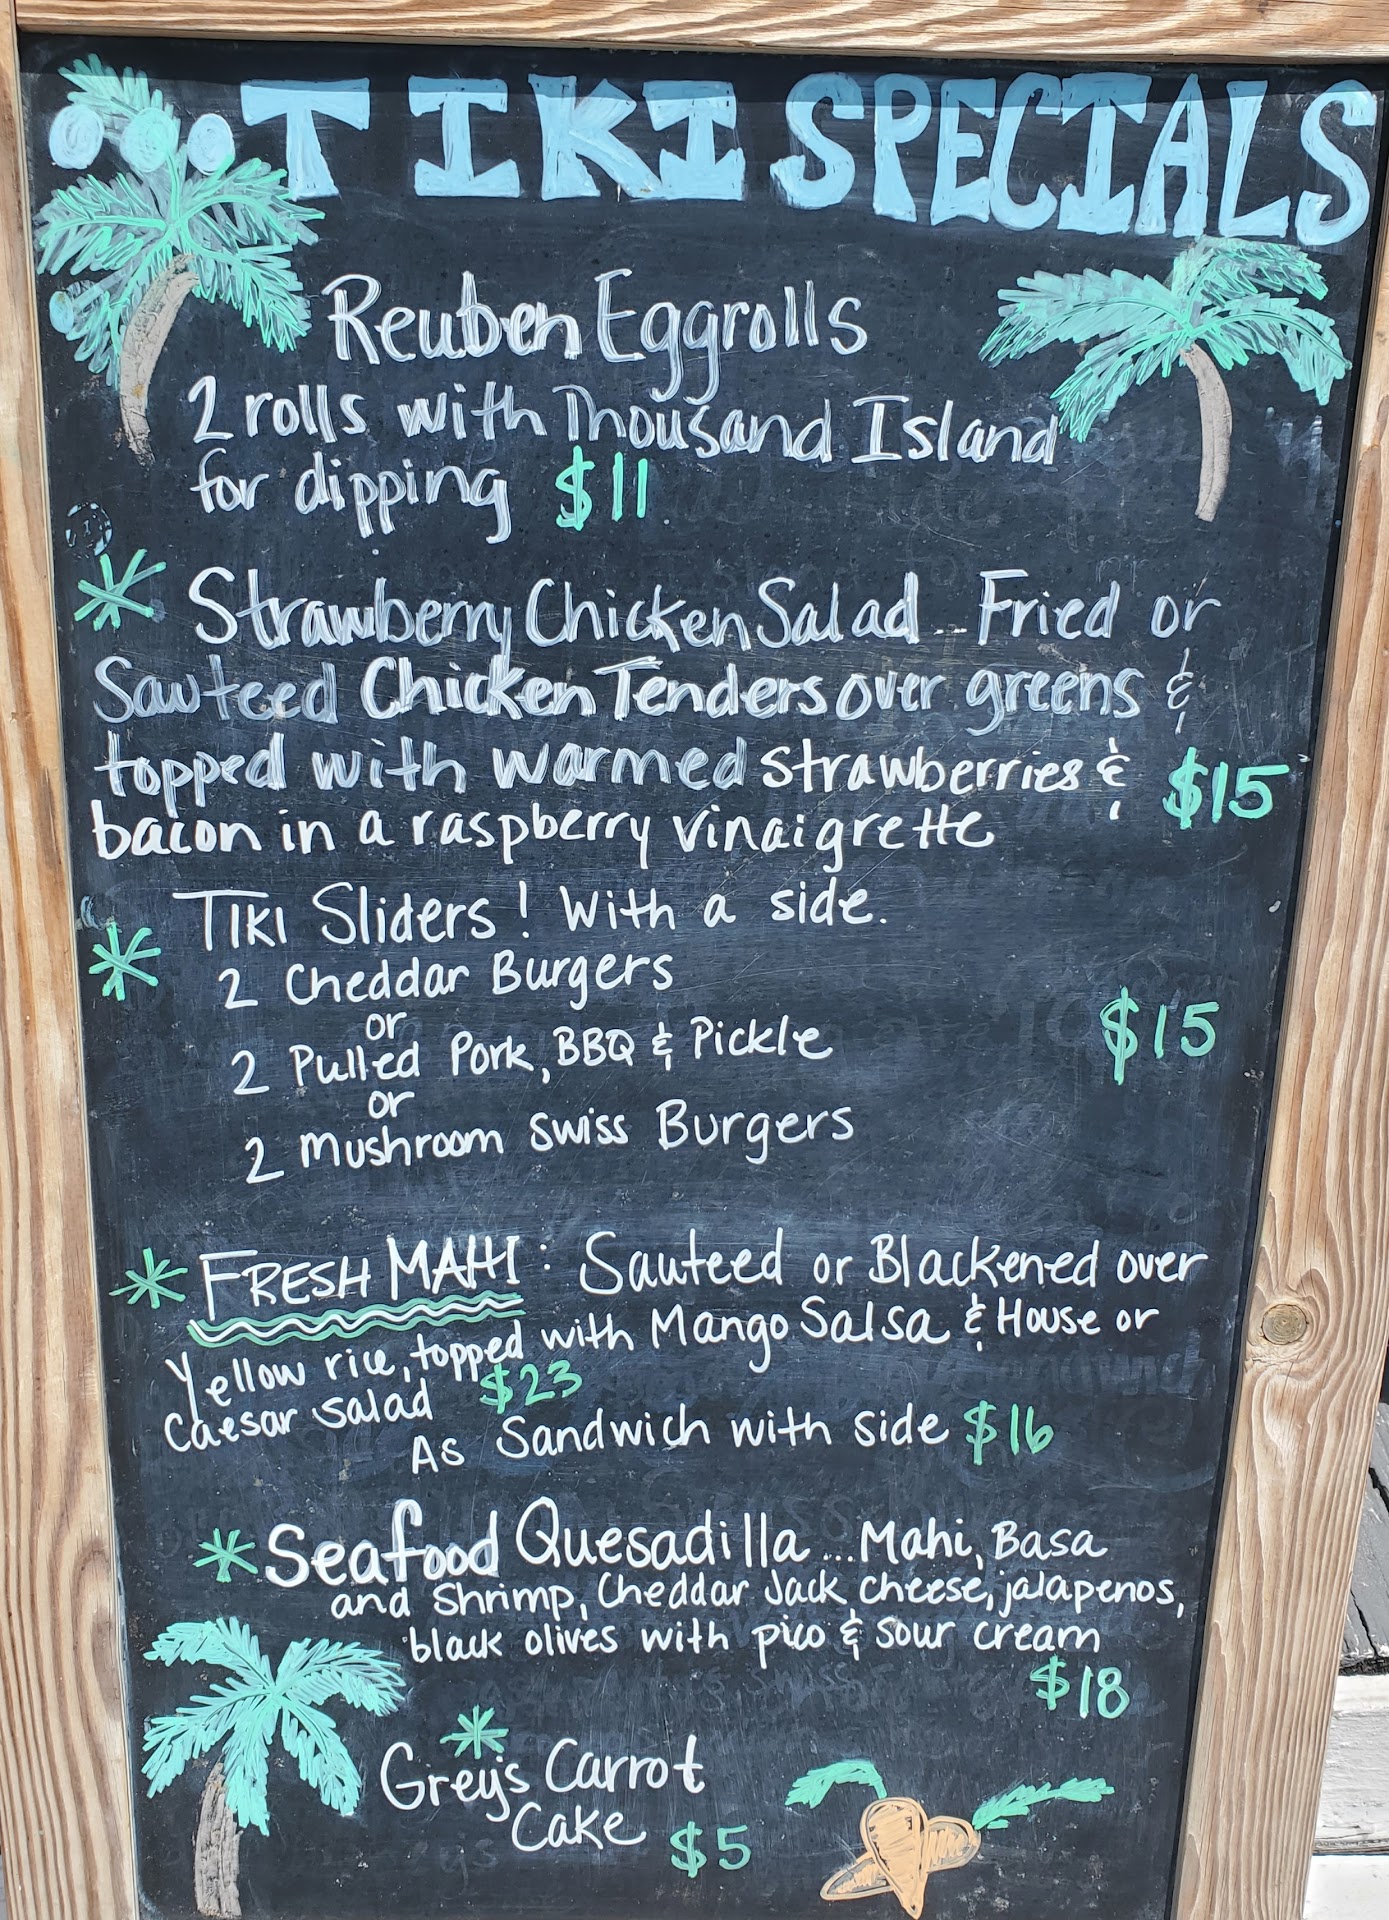 TIKI SPECIALS
Reuben Eggrolls
2 rolls with Thousand Island
for dipping $11
Strawberry Chicken Salad Fried or
Sauteed Chicken Tenders over greens &
topped with warmed strawberries & $15
bacon in a raspberry vinaigrette
TIKI Sliders! With a side.
2 Cheddar Burgers
or
2 Pulled Pork, BBQ & Pickle $15
or
2 Mushroom Swiss Burgers
FRESH MAHI: Sauteed or Blackened over
Yellow rice, topped with Mango Salsa & House or
Caesar salad $23
As Sandwich with side $16
Seafood Quesadilla...Mahi, Basa
and Shrimp, Cheddar Jack cheese, jalapenos,
black olives with pico & sour cream
$18
Grey's Carrot
Cake $5